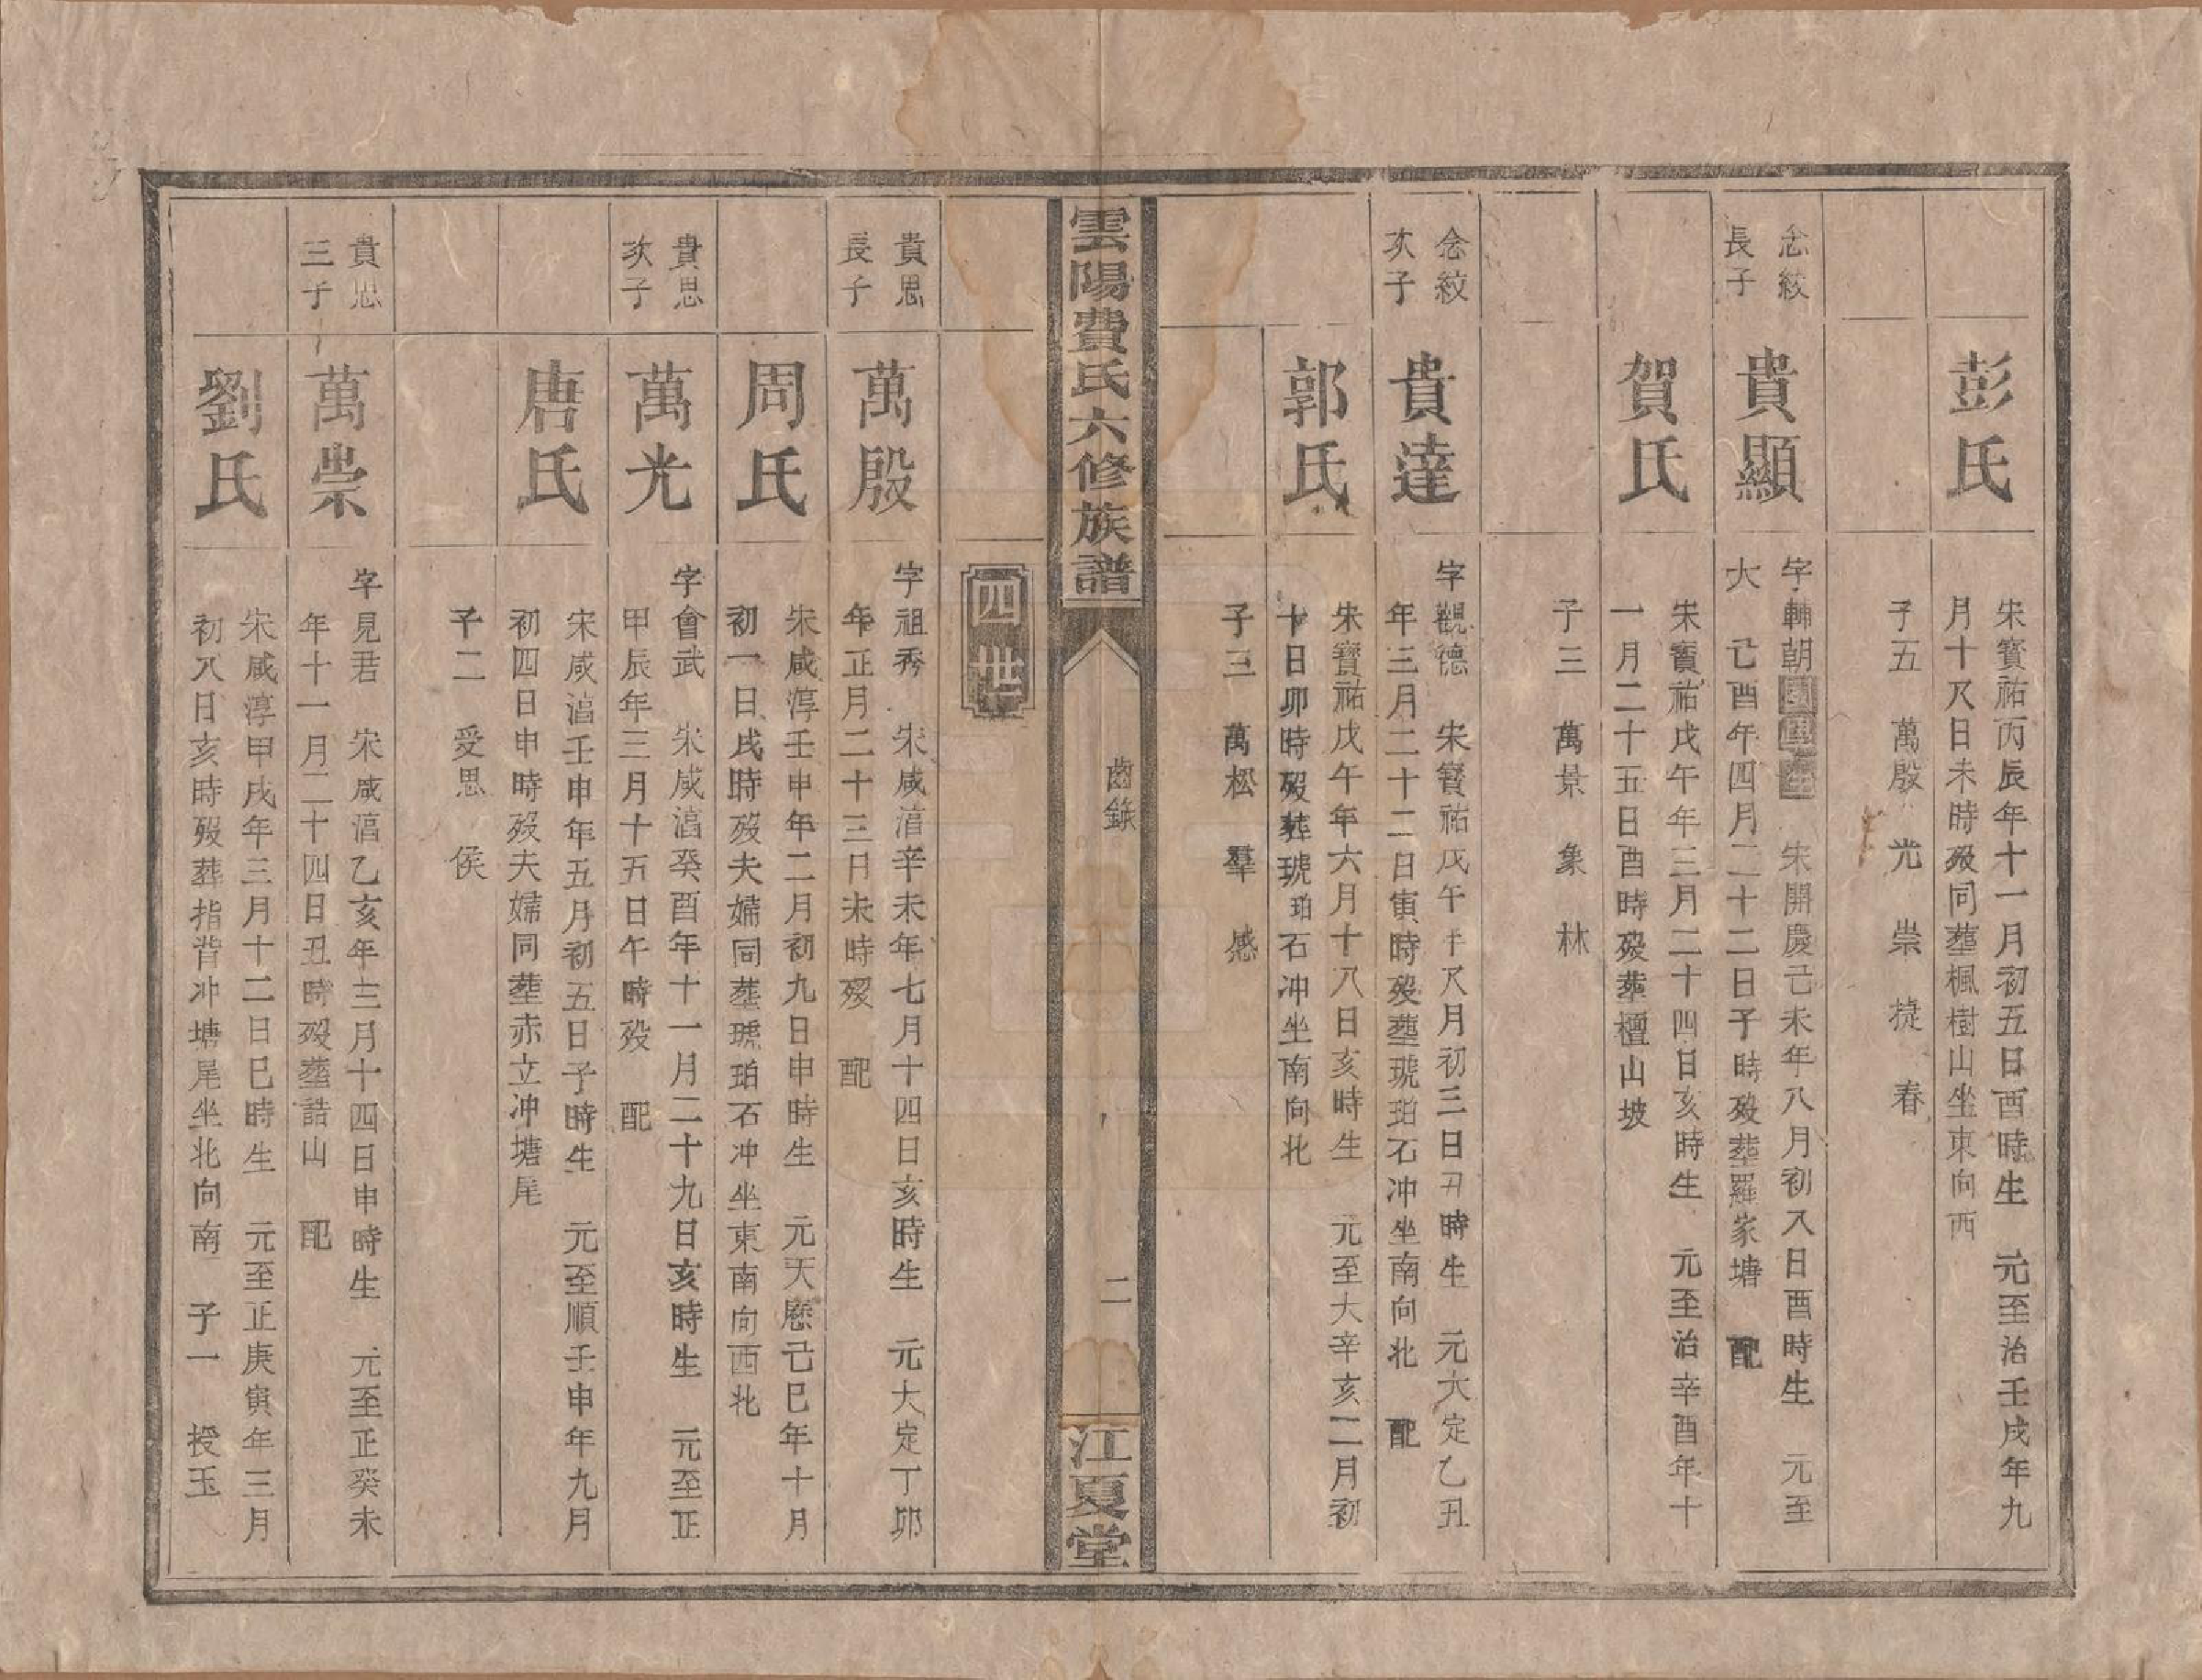 彭氏
宋寳祐丙辰年十一月初五日酉時生 元至治壬戌年九
月十八日未時歿同塟楓樹山坐東向西
子五 萬殷 光 崇 㨗 春
念紋
長子
貴顯
字輔朝 宋開慶己未年八月初八日酉時生 元至
大 己酉年四月二十二日子時歿塟羅家塘 配
賀氏
宋寳祐戊午年三月二十四日亥時生 元至治辛酉年十
一月二十五日酉時歿塟檀山坡
子三 萬景 象 林
念紋
次子
貴達
字觀德 宋寳祐戊午年八月初三日丑時生 元大定乙丑
年三月二十二日寅時歿塟琥珀石冲坐南向北 配
郭氏
宋寳祐戊午年六月十八日亥時生 元至大辛亥二月初
十日卯時歿塟琥珀石冲坐南向北
子三 萬松 羣 感
雲陽費氏六修族譜
齒錄
二
江夏堂
四世
貴思
長子
萬殷
字祖秀 宋咸湻辛未年七月十四日亥時生 元大定丁卯
年正月二十三日未時歿 配
周氏
宋咸淳壬申年二月初九日申時生 元天厯己巳年十月
初一日戌時歿夫婦同塟琥珀石冲坐東南向西北
貴思
次子
萬光
字會武 宋咸湻癸酉年十一月二十九日亥時生 元至正
甲辰年三月十五日午時歿 配
唐氏
宋咸湻壬申年五月初五日子時生 元至順壬申年九月
初四日申時歿夫婦同塟赤立冲塘尾
子二 受思 侯
貴思
三子
萬崇
字見君 宋咸湻乙亥年三月十四日申時生 元至正癸未
年十一月二十四日丑時歿塟誥山 配
劉氏
宋咸淳甲戌年三月十二日巳時生 元至正庚寅年三月
初八日亥時歿塟指背冲塘尾坐北向南 子一 授玉